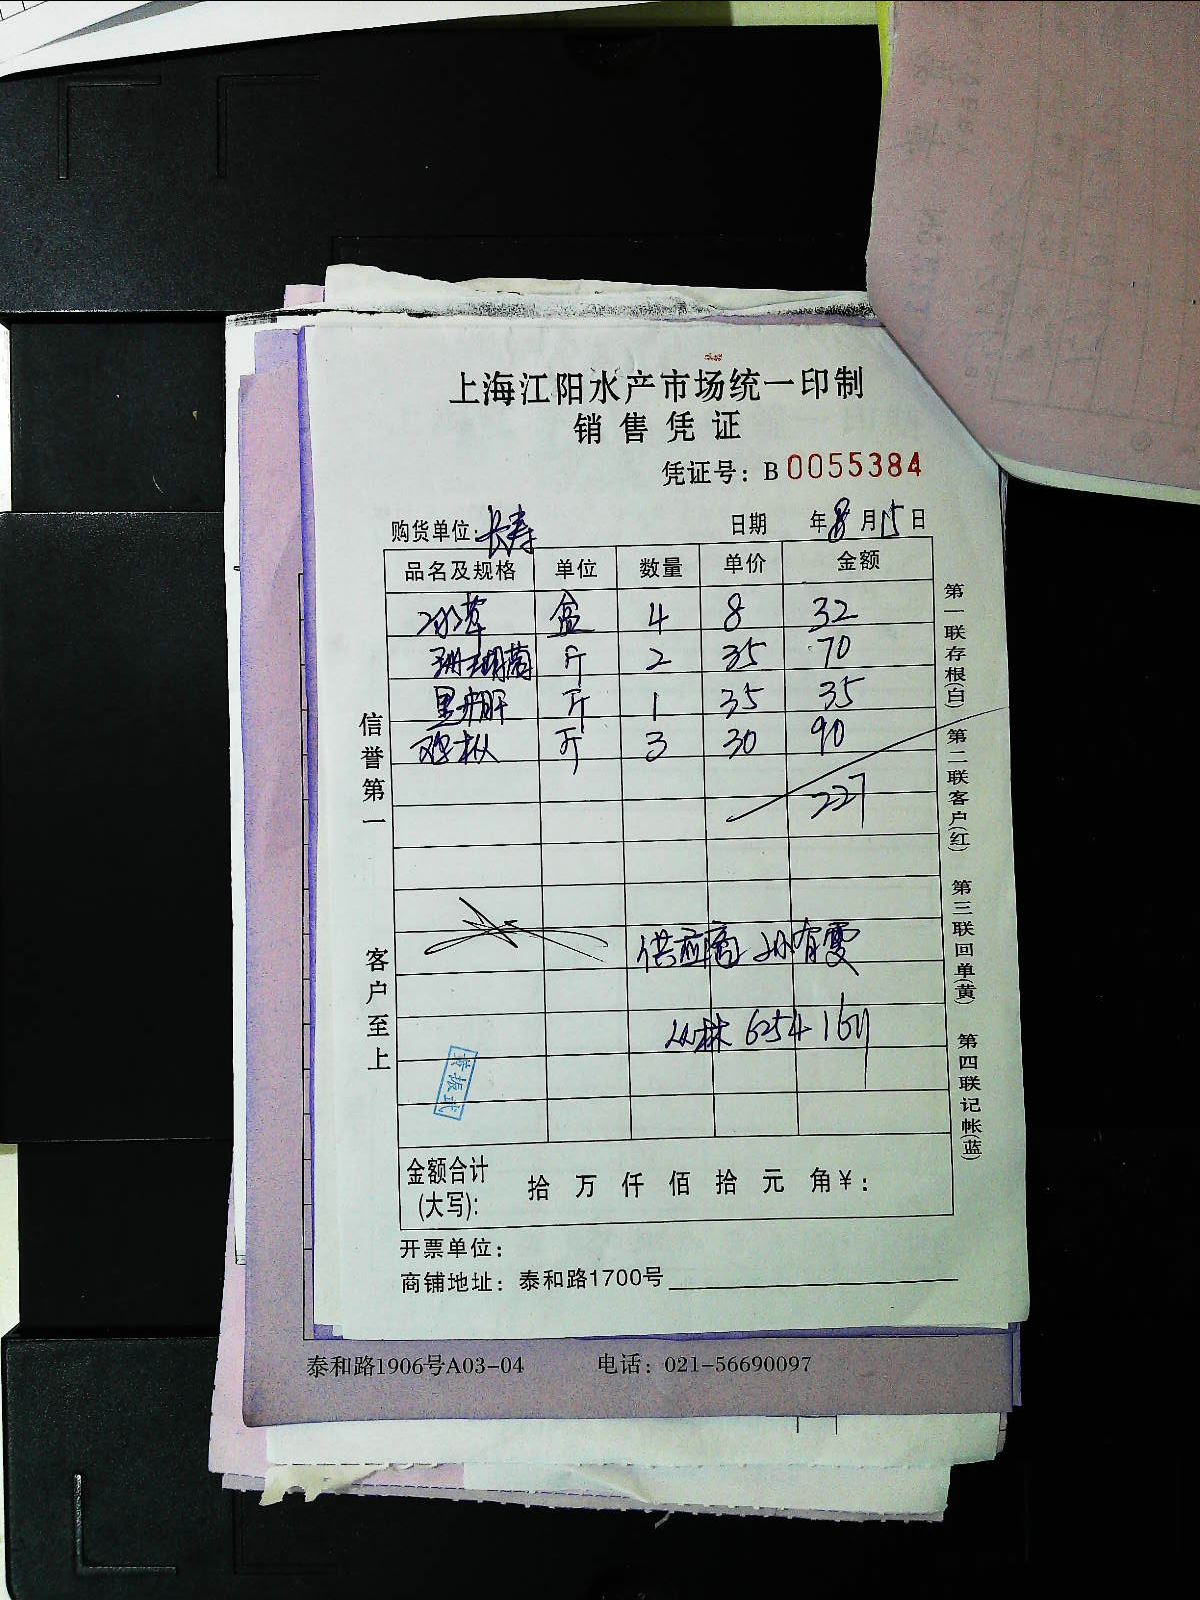 上海江阳水产市场统一印制
销售凭证
凭证号：B0055384
购货单位：长寿 日期 年8月15日
品名及规格 单位 数量 单价 金额
冰草 盒 4 8 32
珊瑚菌 斤 2 35 70
黑牛肝 斤 1 35 35
鸡枞 斤 3 30 90
227
供应商 孙有雯
丛林 6254 1611
黄振武
金额合计(大写)： 拾 万 仟 佰 拾 元 角￥：
开票单位：
商铺地址：泰和路1700号
信誉第一
客户至上
第一联存根(白) 第二联客户(红) 第三联回单(黄) 第四联记帐(蓝)
泰和路1906号A03-04 电话：021-56690097